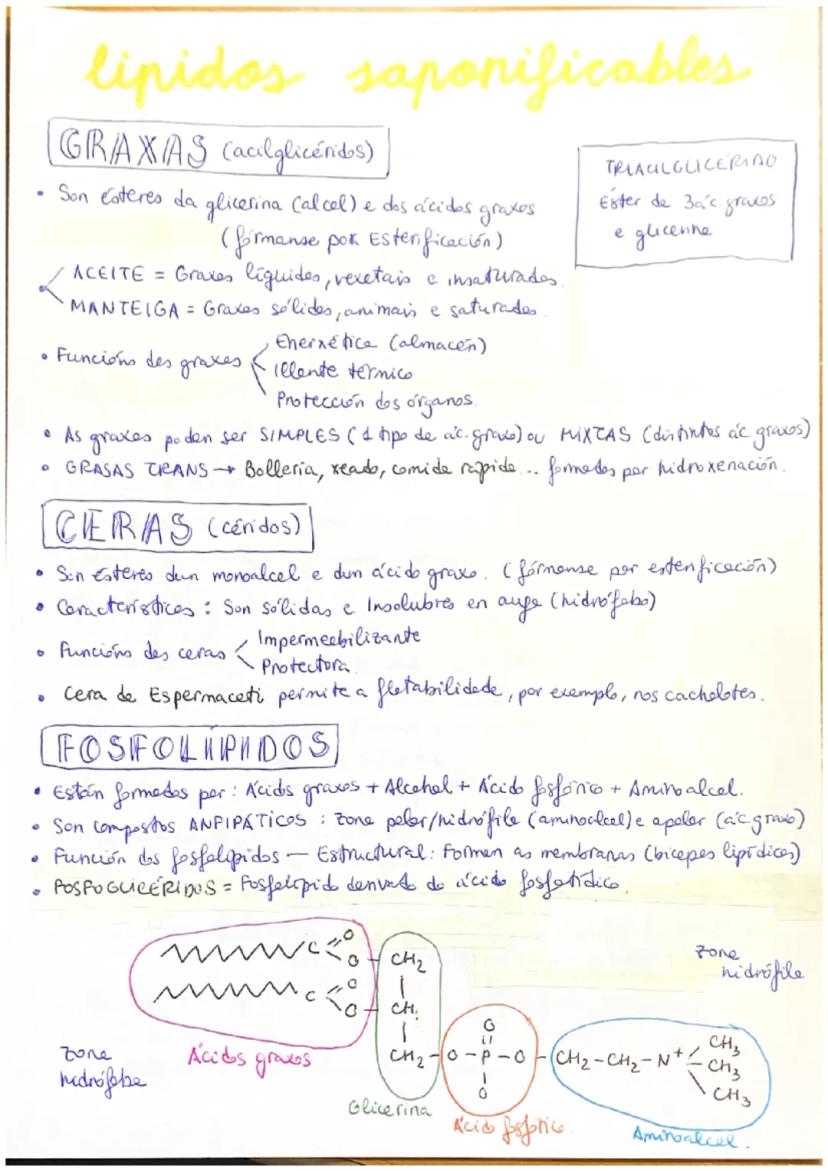 lipidos saponificables
GRAXAS (acilglicéridos)
TRIACILGLICÉRIDO
Éster de 3 ác. graxos
e glicerina
• Son ésteres da glicerina (alcol) e dos ácidos graxos
(fórmanse por Esterificación)
ACEITE = Graxas líquidas, vexetais e insaturadas.
MANTEIGA = Graxas sólidas, animais e saturadas.
• Funcións das graxas
Enerxética (almacén)
Illante térmico
Protección dos órganos.
• As graxas poden ser SIMPLES (1 tipo de ác. graxo) ou MIXTAS (distintos ác graxos)
• GRASAS TRANS → Bollería, xeado, comida rápida... formadas por hidroxenación.
CERAS (céridos)
• Son Ésteres dun monoalcol e dun ácido graxo. (fórmanse por esterificación)
• Características: Son sólidas e Insolubres en auga (hidrófobo)
• Funcións das ceras
Impermeabilizante
Protectora.
• Cera de Espermaceti permite a flotabilidade, por exemplo, nos cachelotes.
FOSFOLÍPIDOS
• Están formados por: Ácidos graxos + Alcohol + Ácido fosfórico + Aminoalcol.
• Son compostos ANFIPÁTICOS: zona polar/hidrófila (aminoalcol) e apolar (ác. graxo)
• Función dos fosfolípidos — Estructural: Forman as membranas (bicapas lipídicas)
• FOSFOGLICÉRIDOS = Fosfolípido derivado do ácido fosfatídico.
C O O CH₂
zona
hidrófila
C O O CH
CH₂ - O - P - O - CH₂ - CH₂ - N⁺ CH₃ CH₃ CH₃
O
O
zona
hidrófoba
Ácidos graxos
Glicerina
Ácido fosfórico.
Aminoalcol.